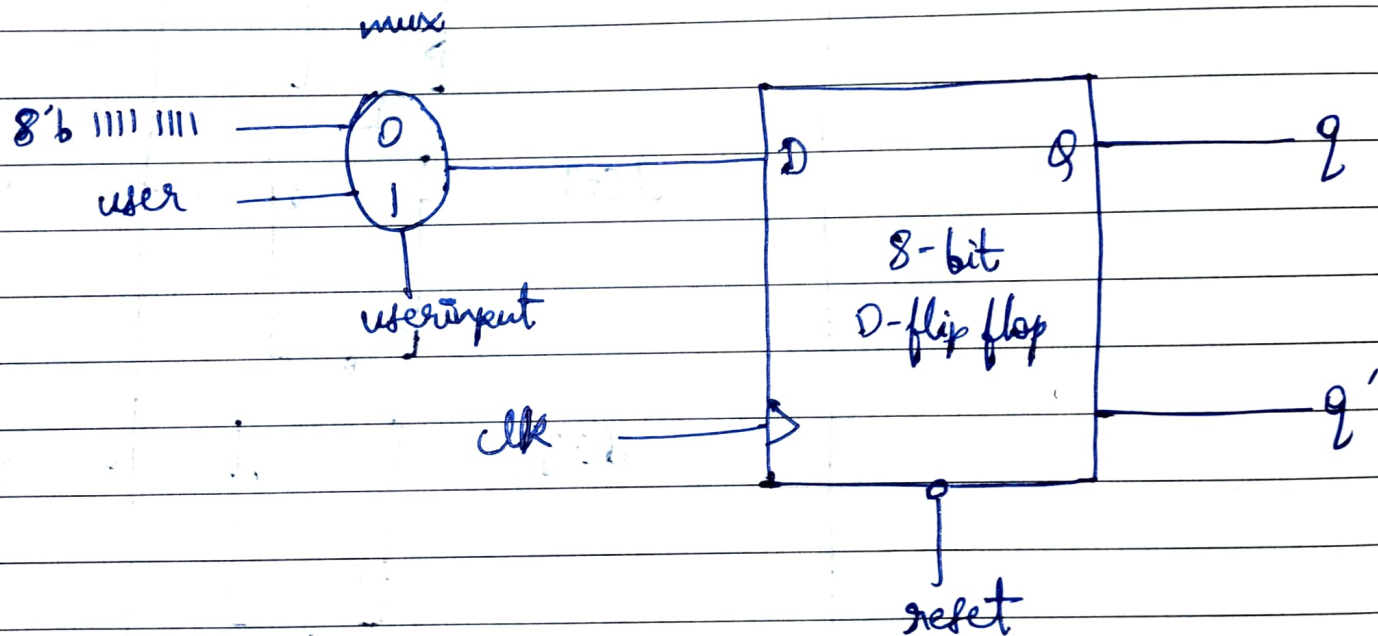 mux
8'b 1111 1111
0
user
1
userinput
D
Q
q
8-bit
D-flip flop
clk
q'
reset